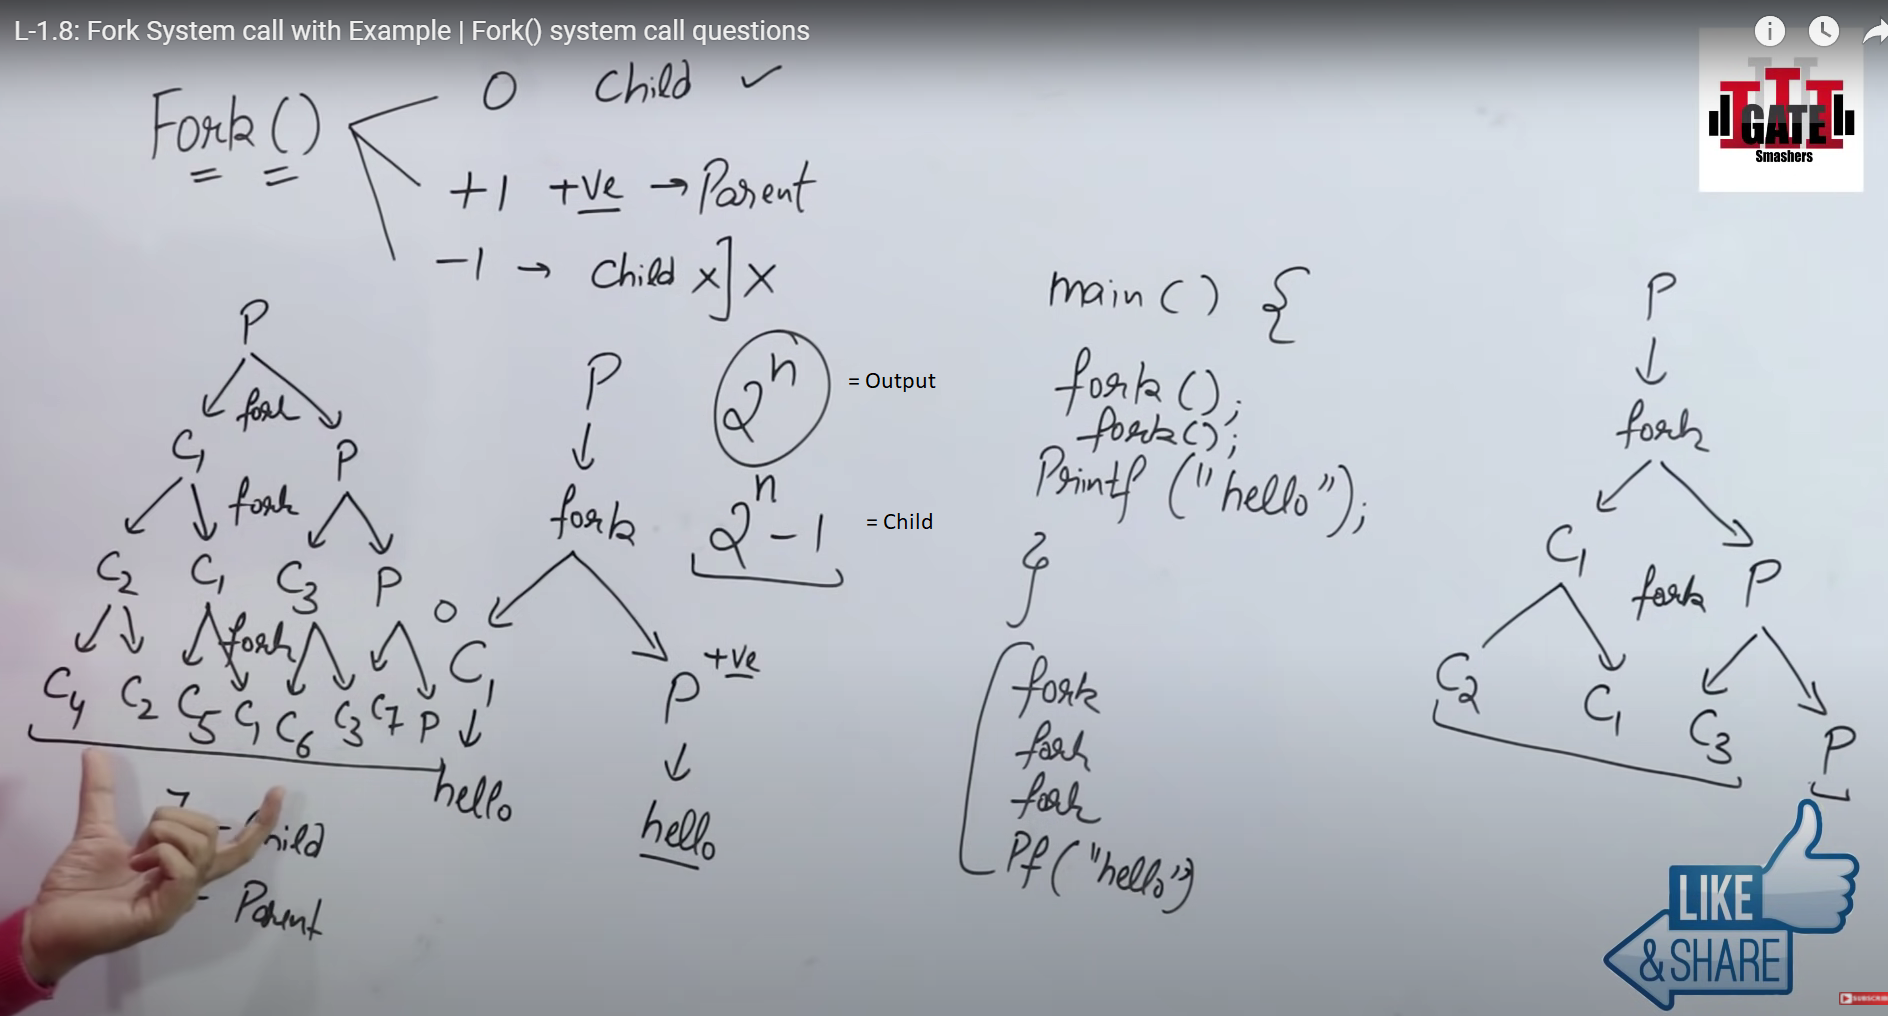 L-1.8: Fork System call with Example | Fork() system call questions
GATE
Smashers
Fork()
0 Child ✓
+1 +ve → Parent
-1 → Child x] x
P
fork
C1 P
fork
C2 C1 C3 P
fork
C4 C2 C5 C1 C6 C3 C7 P
7 - Child
- Parent
P
fork
0
C1
+ve
P
hello
hello
2^n = Output
2^n - 1 = Child
main() {
fork();
fork();
Printf ("hello");
}
fork
fork
fork
Pf("hello")
P
fork
C1 P
fork
C2 C1 C3 P
LIKE
& SHARE
SUBSCRIBE